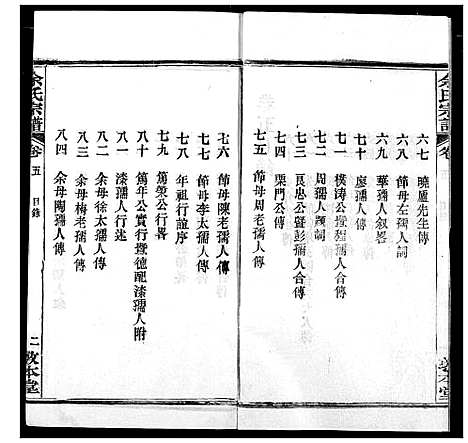 余氏宗譜
卷
六七 曉廬先生傳
六八 節母左孺人詞
六九 華孺人叙畧
七十 廖孺人傳
七一 樸濤公暨孺人合傳
七二 周孺人頌詞
七三 良忠公暨彭孺人合傳
七四 栗門公傳
七五 節母周老孺人傳
敦本堂
七六 節母陳老孺人傳
七七 節母李太孺人傳
七八 年祖行誼序
七九 篤榮公行畧
八十 篤年公實行暨德配漆孺人附
八一 漆孺人傳
八二 余母徐太孺人傳
八三 余母梅老孺人傳
八四 余母陶孺人傳
余氏宗譜
卷五 目錄
二 敦本堂